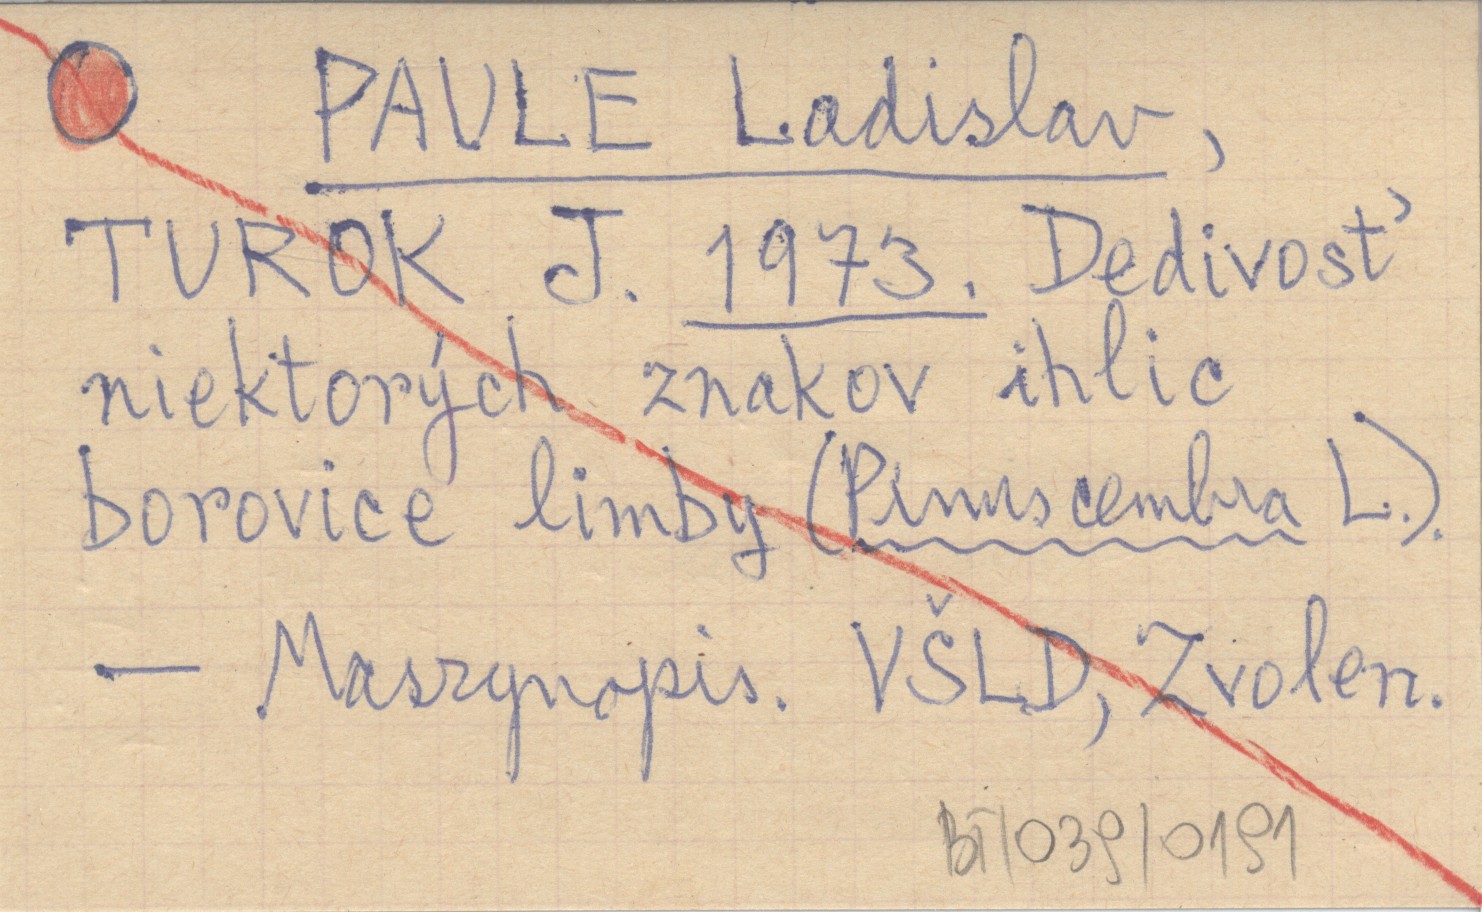 PAULE Ladislav,
TUROK J. 1973. Dedivosť
niektorých znakov ihlic
borovice limby (Pinus cembra L.).
— Maszynopis. VŠLD, Zvolen.
BT/039/0191